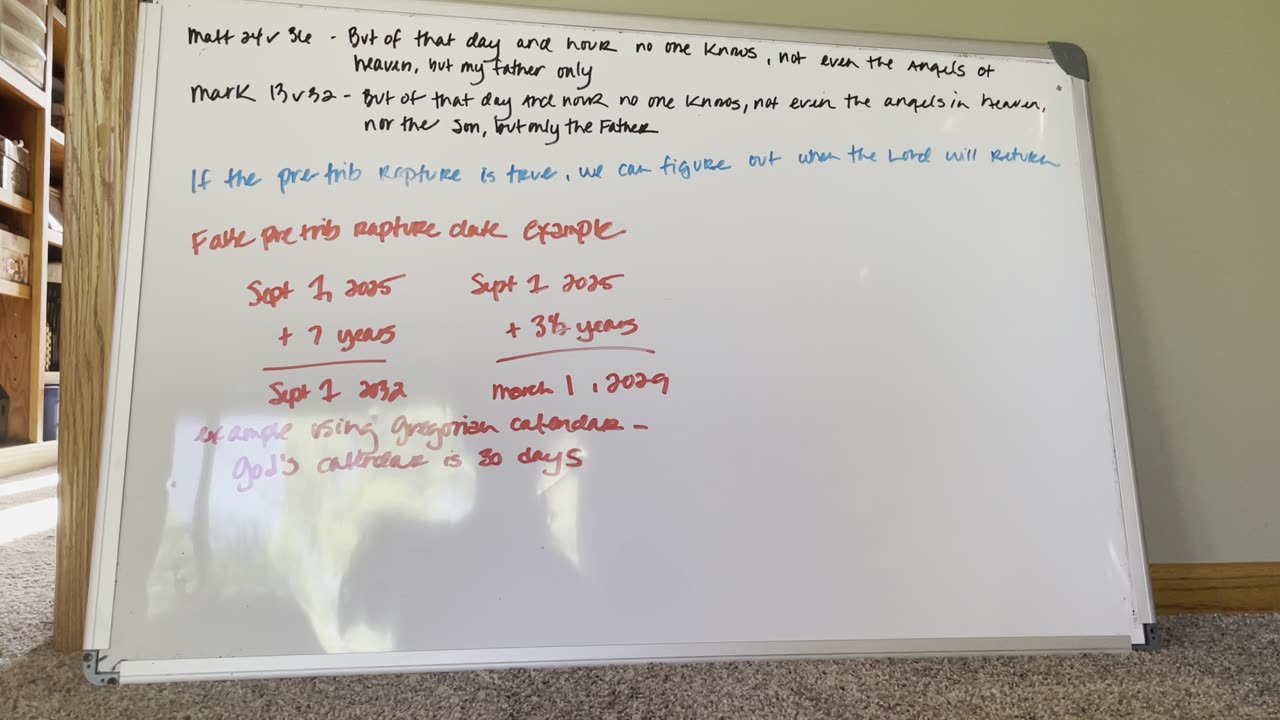 Matt 24v 36 - But of that day and hour no one knows, not even the Angels of
heaven, but my Father only
Mark 13v32 - But of that day and hour no one knows, not even the angels in heaven,
nor the Son, but only the Father
If the pre-trib Rapture is true, we can figure out when the Lord will Return
False pretrib Rapture date example
Sept 1, 2025 Sept 1 2025
+ 7 years + 3½ years
Sept 1 2032 March 1, 2029
example using gregorian calendar -
god's calendar is 30 days